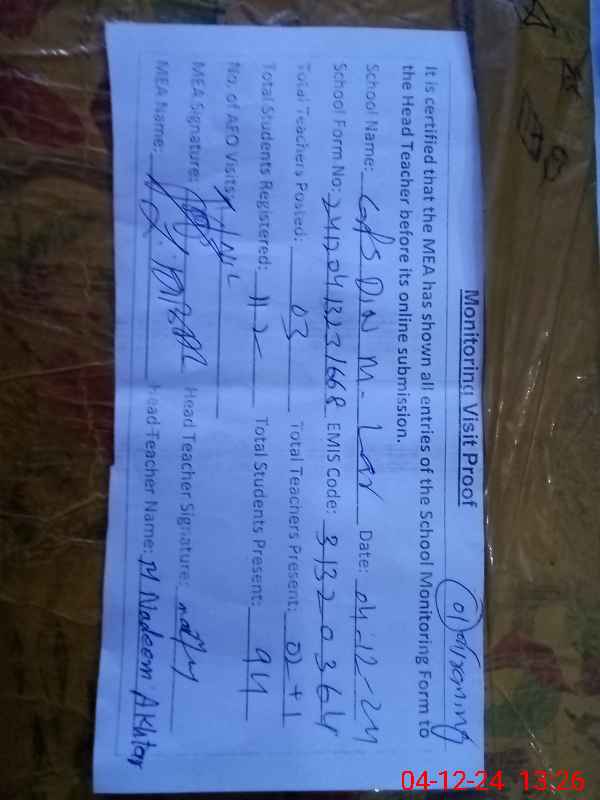 Monitoring Visit Proof
It is certified that the MEA has shown all entries of the School Monitoring Form to
the Head Teacher before its online submission.
School Name: GPS DIN M. Lar Date: 04-12-24
School Form No: EMIS Code: 31320364
Total Teachers Posted: 03 Total Teachers Present: 02+1
Total Students Registered: 112 Total Students Present: 94
No. of AEO Visits: Nil
MEA Signature: Head Teacher Signature:
MEA Name: Head Teacher Name: M Nadeem Akhtar
04-12-24 13:26